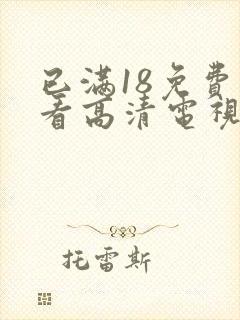 已满18免費
看高清電視
托雷斯